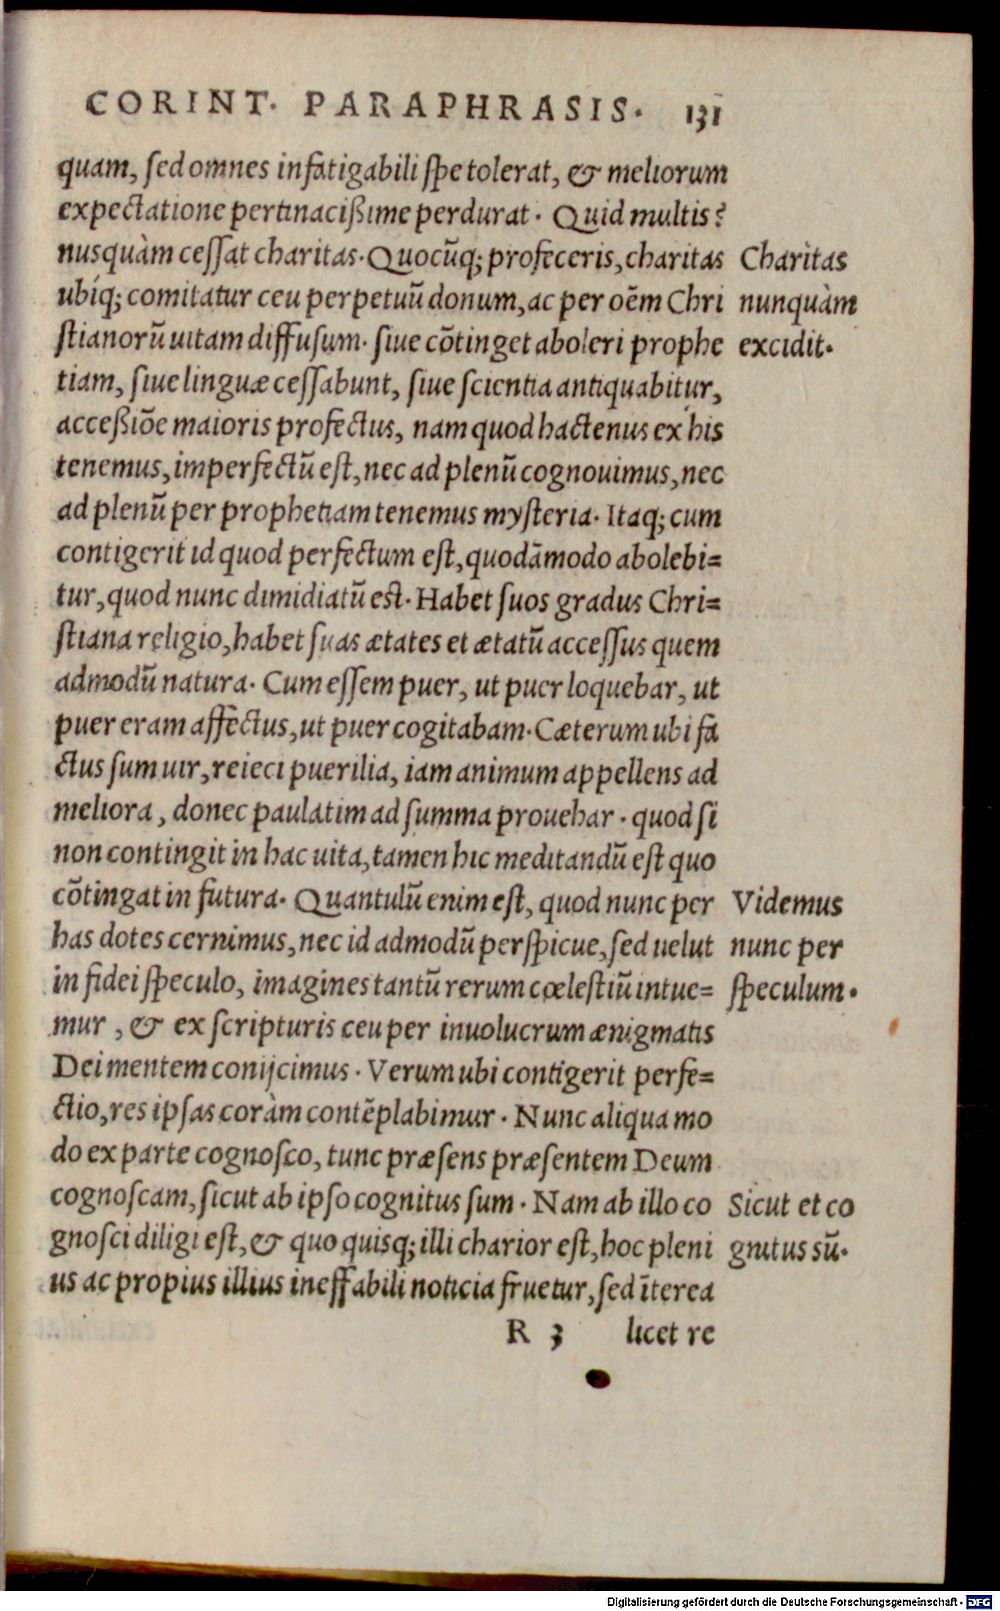 CORINT. PARAPHRASIS. 131
quam, sed omnes infatigabili spe tolerat, & meliorum
expectatione pertinacißime perdurat. Quid multis?
nusquàm cessat charitas. Quocũq; profeceris, charitas
ubíq; comitatur ceu perpetuũ donum, ac per oẽm Chri
stianorũ uitam diffusum. siue cõtinget aboleri prophe
tiam, siue linguæ cessabunt, siue scientia antiquabitur,
acceßiõe maioris profectus, nam quod hactenus ex his
tenemus, imperfectũ est, nec ad plenũ cognouimus, nec
ad plenũ per prophetiam tenemus mysteria. Itaq; cum
contigerit id quod perfectum est, quodãmodo abolebi=
tur, quod nunc dimidiatũ est. Habet suos gradus Chri=
stiana religio, habet suas ætates et ætatũ accessus quem
admodũ natura. Cum essem puer, ut puer loquebar, ut
puer eram affectus, ut puer cogitabam. Cæterum ubi fa
ctus sum uir, reieci puerilia, iam animum appellens ad
meliora, donec paulatim ad summa prouehar. quod si
non contingit in hac uita, tamen hic meditandũ est quo
cõtingat in futura. Quantulũ enim est, quod nunc per
has dotes cernimus, nec id admodũ perspicue, sed uelut
in fidei speculo, imagines tantũ rerum cœlestiũ intue=
mur, & ex scripturis ceu per inuolucrum ænigmatis
Dei mentem conijcimus. Verum ubi contigerit perfe=
ctio, res ipsas coràm contẽplabimur. Nunc aliqua mo
do ex parte cognosco, tunc præsens præsentem Deum
cognoscam, sicut ab ipso cognitus sum. Nam ab illo co
gnosci diligi est, & quo quisq; illi charior est, hoc pleni
us ac propius illius ineffabili noticia fruetur, sed ĩterea
R 3 licet re
Charitas
nunquàm
excidit.
Videmus
nunc per
speculum.
Sicut et co
gnitus sũ.
Digitalisierung gefördert durch die Deutsche Forschungsgemeinschaft - DFG